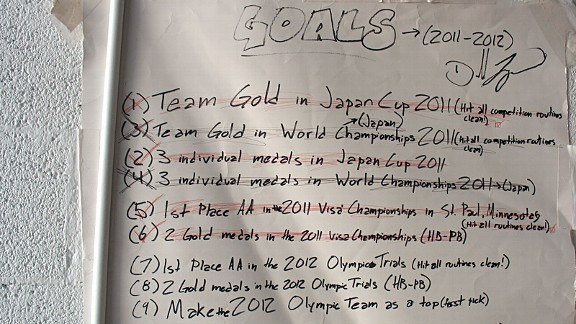 GOALS → (2011-2012)
(1) Team Gold in Japan Cup 2011 (Hit all competition routines clean!)
→ (Japan)
(3) Team Gold in World Championships 2011 (hit all competition routines clean)
(2) 3 individual medals in Japan Cup 2011
(4) 3 individual medals in World Championships 2011 → (Japan)
(5) 1st Place AA in the 2011 Visa Championships in St. Paul, Minnesota
(Hit all routines clean!)
(6) 2 Gold medals in the 2011 Visa Championships (HB-PB)
(7) 1st Place AA in the 2012 Olympic Trials (Hit all routines clean!)
(8) 2 Gold medals in the 2012 Olympic Trials (HB-PB)
(9) Make the 2012 Olympic Team as a top (first pick)